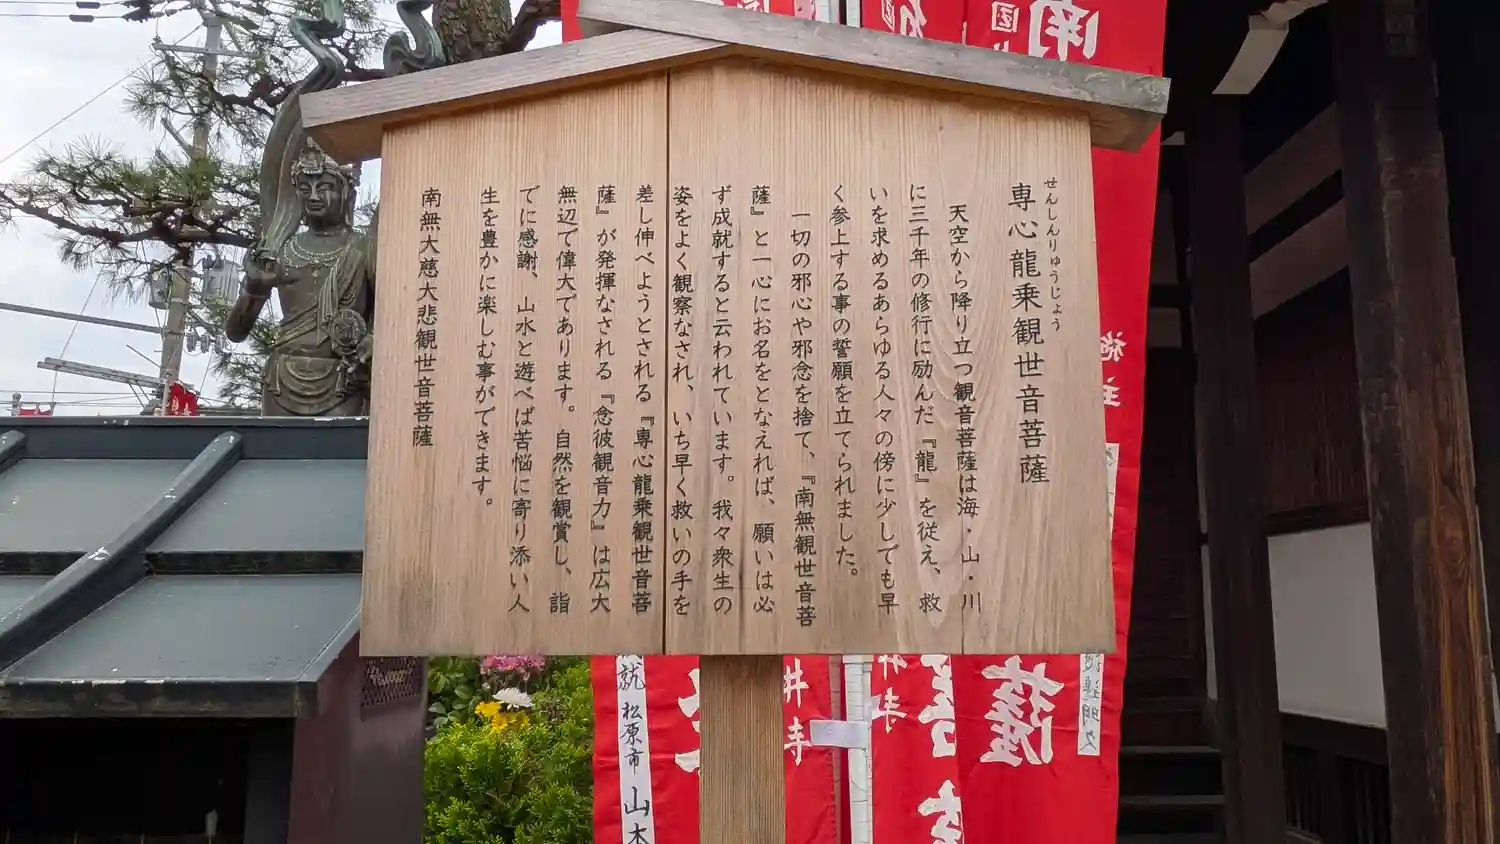 せんしんりゅうじょう
専心龍乗観世音菩薩
天空から降り立つ観音菩薩は海・山・川
に三千年の修行に励んだ『龍』を従え、救
いを求めるあらゆる人々の傍に少しでも早
く参上する事の誓願を立てられました。
一切の邪心や邪念を捨て、『南無観世音菩
薩』と一心にお名をとなえれば、願いは必
ず成就すると云われています。我々衆生の
姿をよく観察なされ、いち早く救いの手を
差し伸べようとされる『専心龍乗観世音菩
薩』が発揮なされる『念彼観音力』は広大
無辺で偉大であります。自然を観賞し、詣
でに感謝、山水と遊べば苦悩に寄り添い人
生を豊かに楽しむ事ができます。
南無大慈大悲観世音菩薩
施主
薩
井寺
井寺
就 松原市 山本